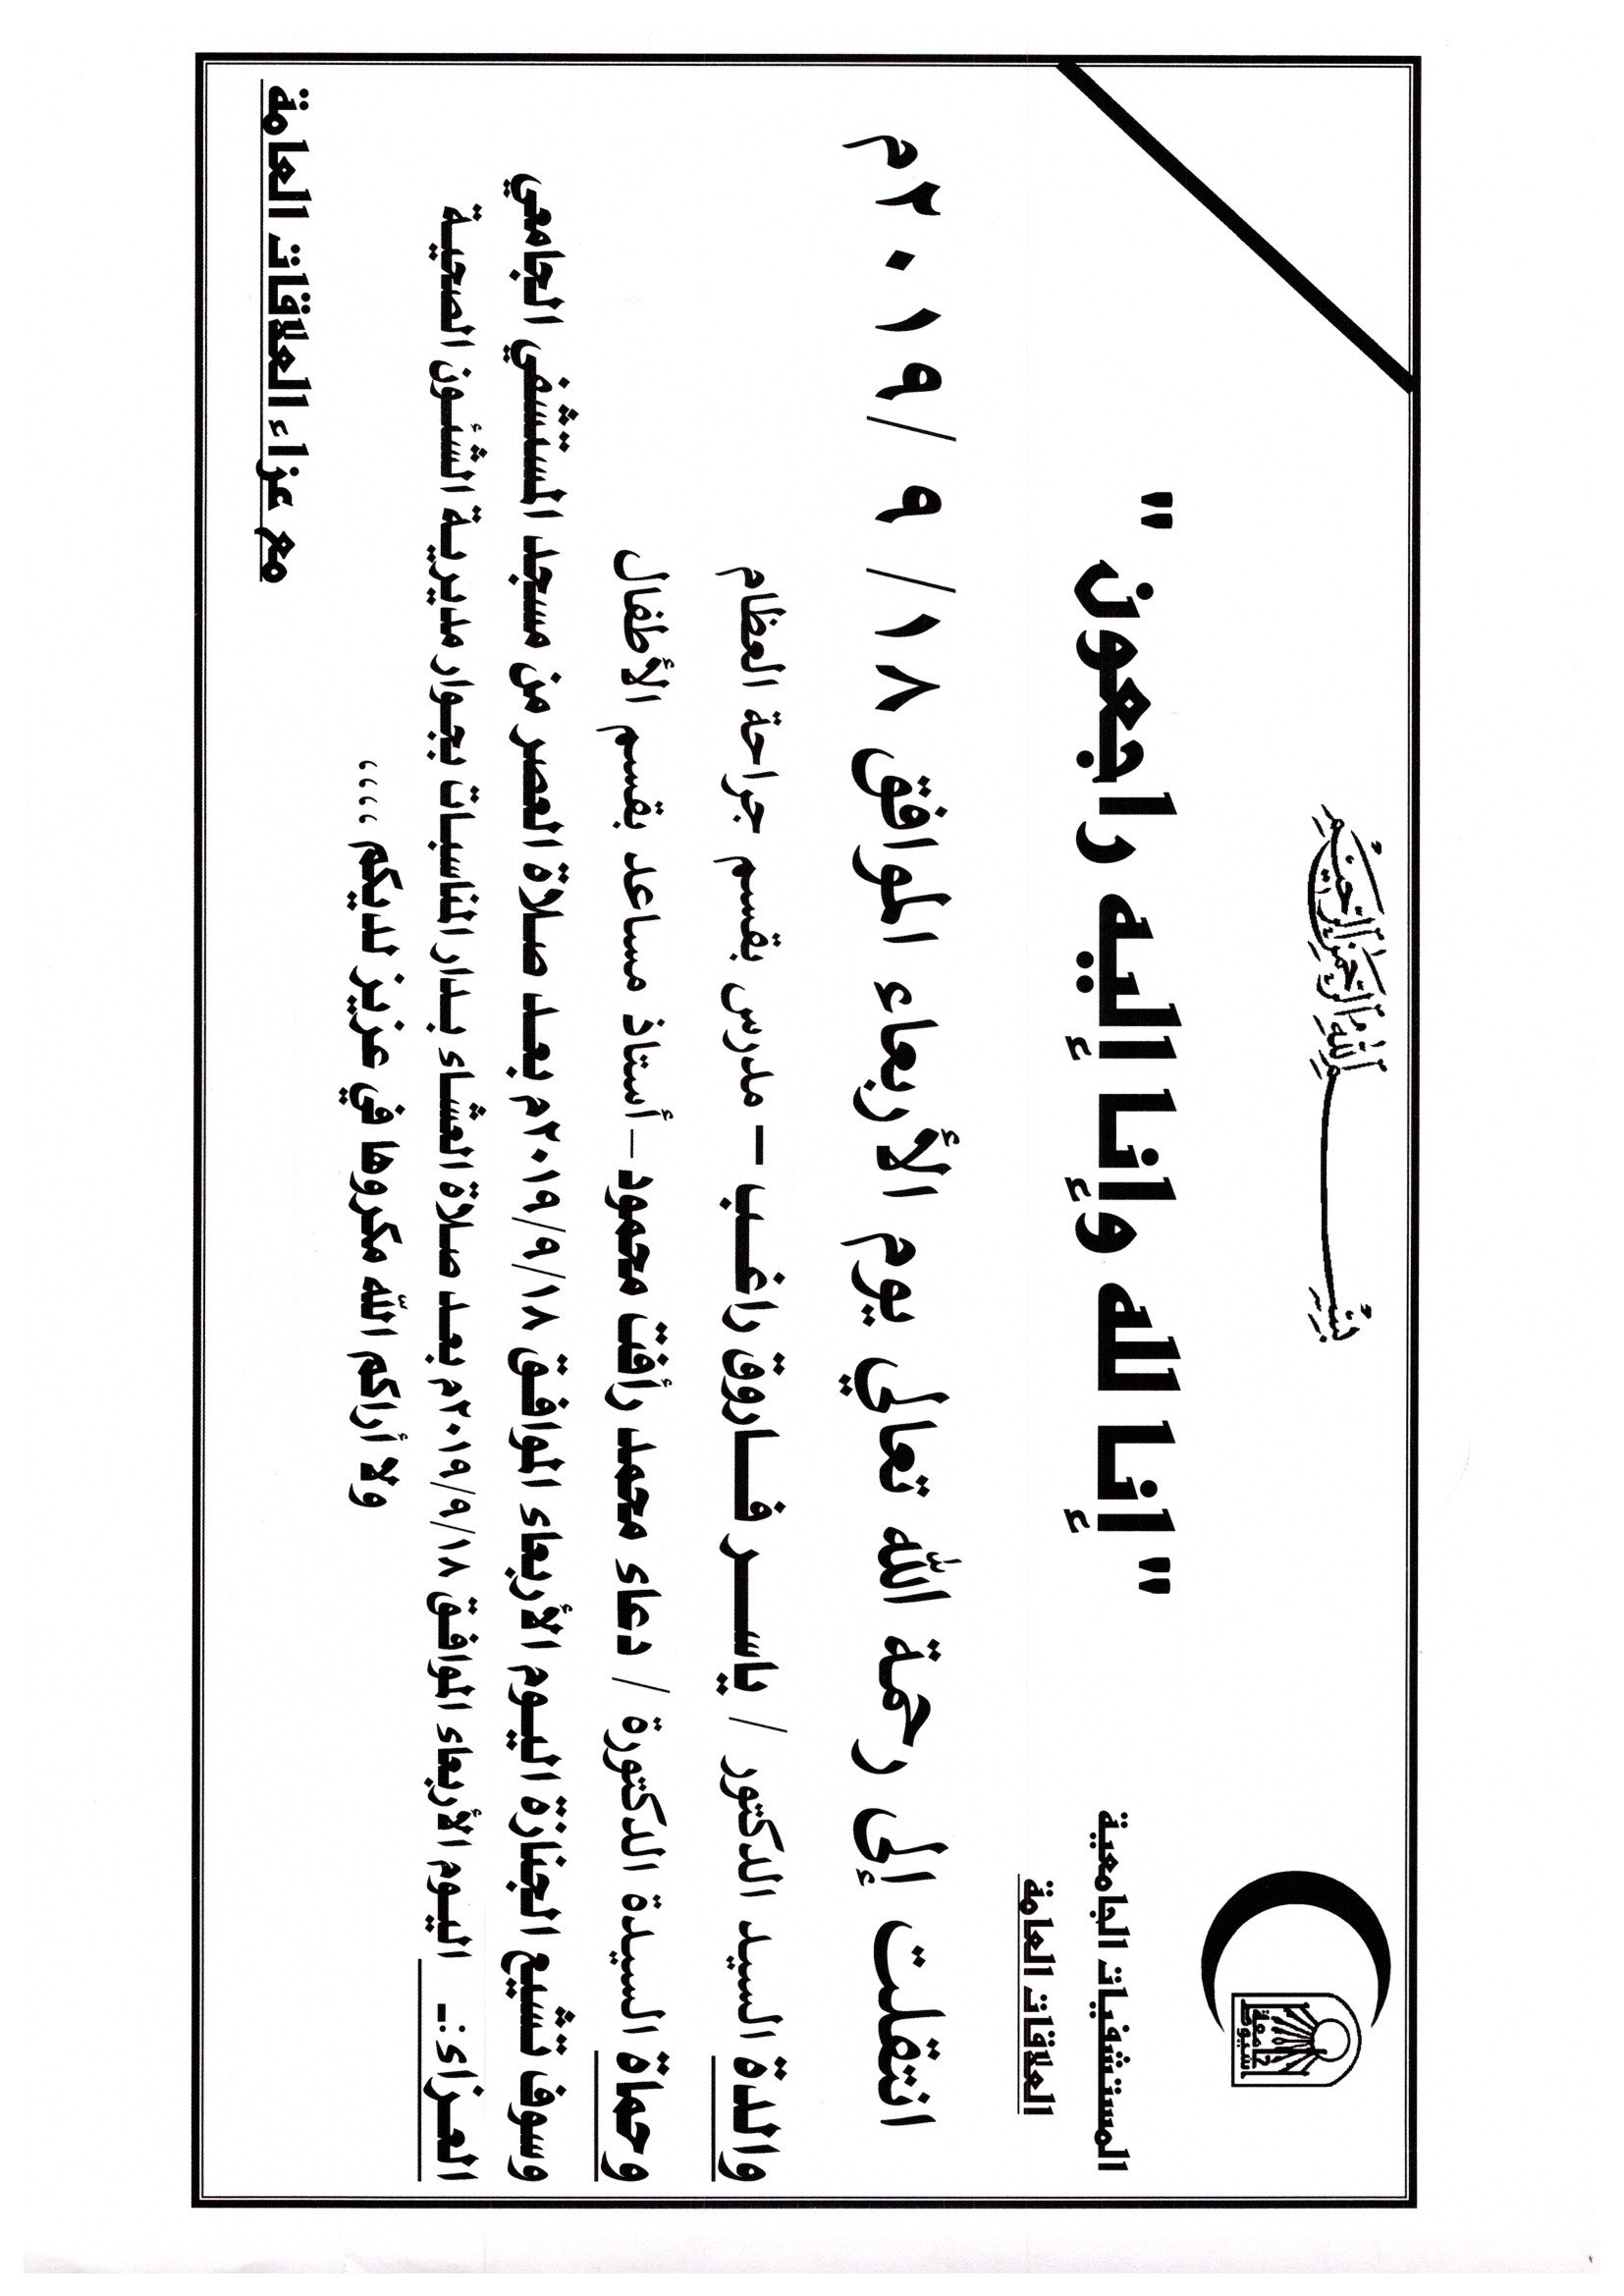 بسم الله الرحمن الرحيم
جامعة
اسيوط
المستشفيات الجامعية
العلاقات العامة
" إنا لله وإنا إليه راجعون "
انتقلت إلى رحمة الله تعالي يوم الأربعاء الموافق ١٨/ ٩ /٢٠١٩م
والدة السيد الدكتور / ياسر فاروق راغب – مدرس بقسم جراحة العظام
وحماة السيدة الدكتورة / دعاء محمد رأفت محمود – أستاذ مساعد بقسم الأطفال
وسوف تشيع الجنازة اليوم الأربعاء الموافق ٢٠١٩/٩/١٨م بعد صلاة العصر من مسجد المستشفي الجامعي
العزاء :ـ اليوم الأربعاء الموافق ٢٠١٩/٩/١٨م بعد صلاة العشاء بدار المناسبات بجوار مديرية الشئون الصحية
ولا أراكم الله مكروها في عزيز لديكم ،،،،
مع عزاء العلاقات العامة